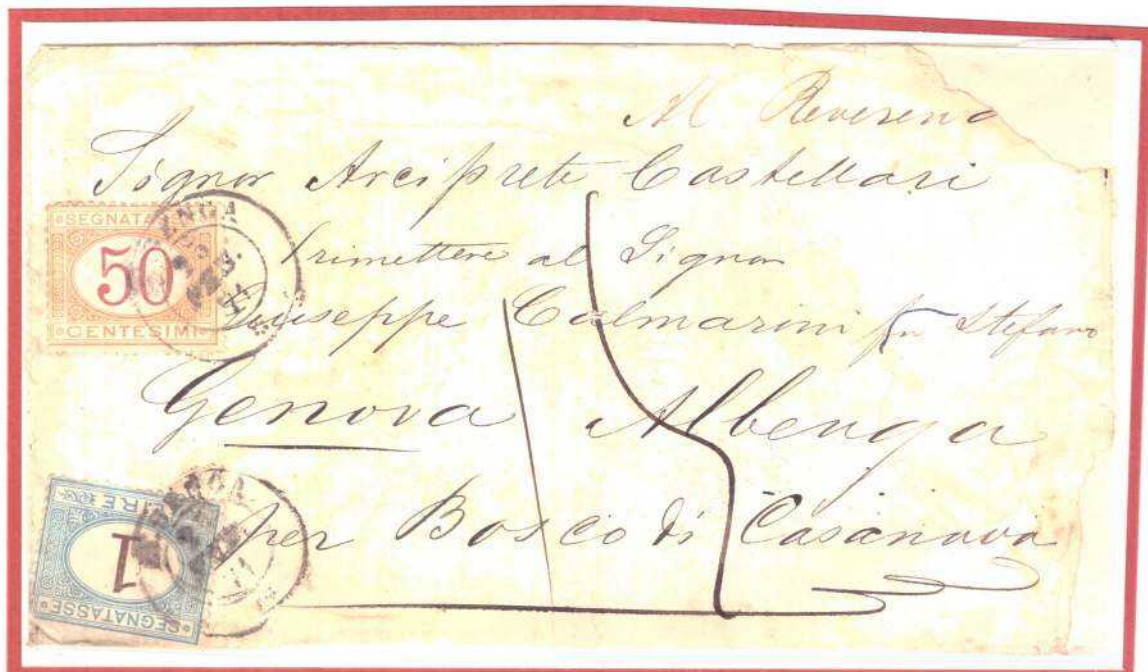 Al Reverend
Signor Arciprete Castellari
SEGNATA
50
CENTESIMI
ENGA
rimettere al Signor
Giuseppe Calmarini fu Stefano
Genova Albenga
per Bosco di Casanova
15
LIRE
1
SEGNATASSE